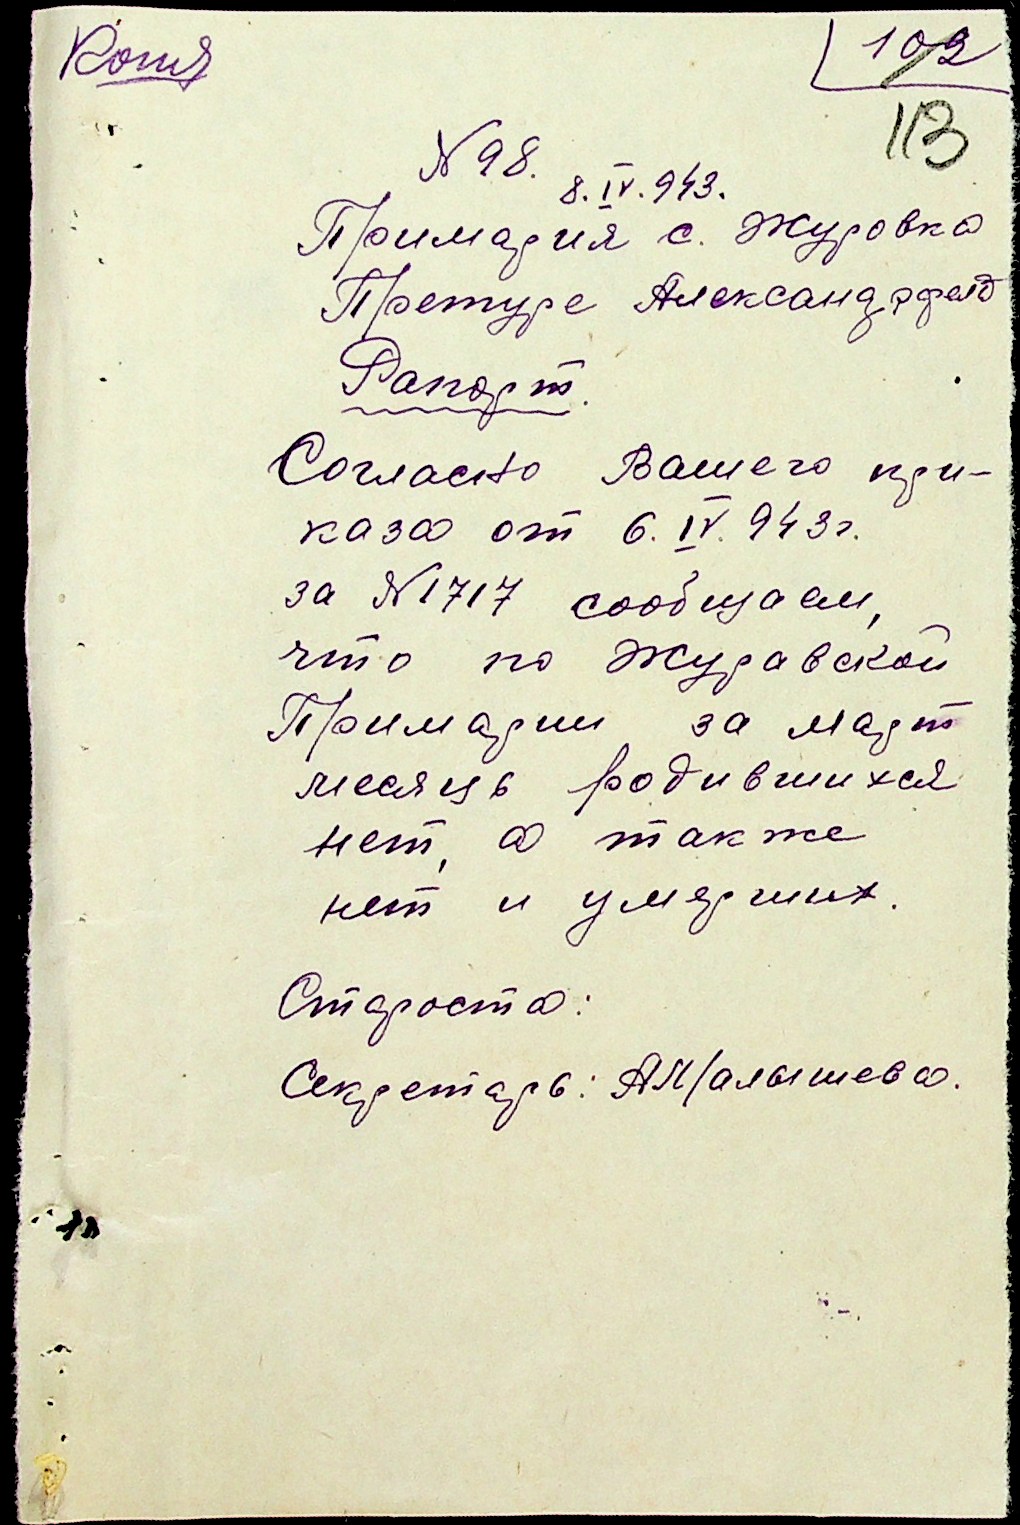 Копия
102
113
N 98.
8. IV. 943.
Примария с. Журовка
Претуре Александрфельд
Рапорт.
Согласно Вашего при-
каза от 6. IV. 943 г.
за N 1717 сообщаем,
что по Журавской
Примарии за март
месяць родившихся
нет, а также
нет и умерших.
Староста:
Секретарь: АМалышева.